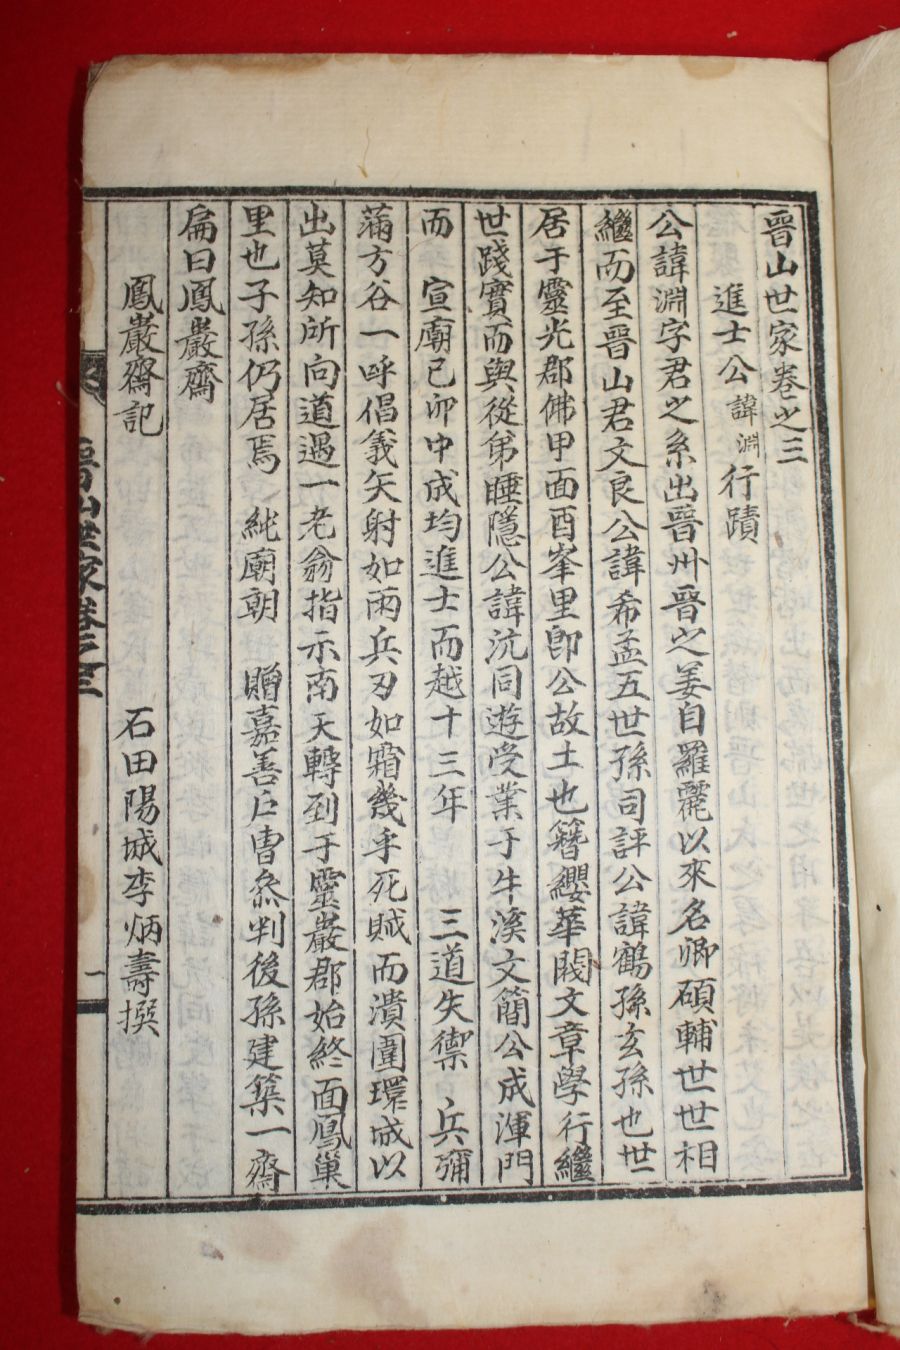 晉山世家卷之三
進士公諱淵行蹟
公諱淵字君之系出晋州晋之姜自羅麗以來名卿碩輔世世相
繼而至晋山君文良公諱希孟五世孫司評公諱鶴孫玄孫也世
居于靈光郡佛甲面酉峯里卽公故土也簪纓華閥文章學行繼
世踐實而與從弟睡隱公諱沆同遊受業于牛溪文簡公成渾門
而 宣廟己卯中成均進士而越十三年 三道失禦 兵彌
滿方谷一呼倡義矢射如雨兵刃如霜幾乎死賊而潰圍環城以
出莫知所向道遇一老翁指示南天轉到于靈巖郡始終面鳳巢
里也子孫仍居焉 純廟朝 贈嘉善戶曹叅判後孫建築一齋
扁曰鳳巖齋
鳳巖齋記 石田陽城李炳壽撰
晉山世家卷之三 一